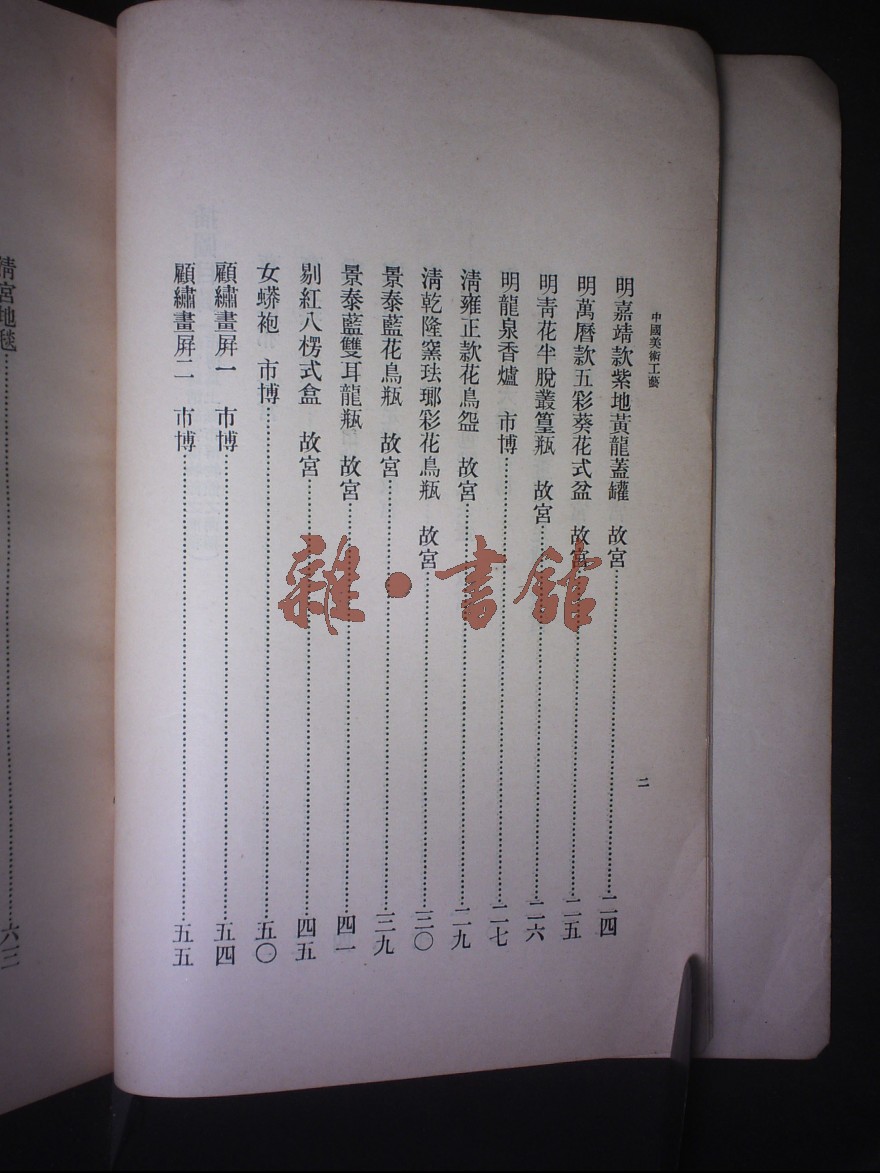 中國美術工藝
二
明嘉靖款紫地黃龍蓋罐 故宮……二四
明萬曆款五彩葵花式盆 故宮……二五
明青花半脫叢篁瓶 故宮……二六
明龍泉香爐 市博……二七
清雍正款花鳥盌 故宮……二九
清乾隆窯琺瑯彩花鳥瓶 故宮……三〇
景泰藍花鳥瓶 故宮……三九
景泰藍雙耳龍瓶 故宮……四一
剔紅八楞式盒 故宮……四五
女蟒袍 市博……五〇
顧繡畫屏一 市博……五四
顧繡畫屏二 市博……五五
清宮地毯……六三
雜·書館